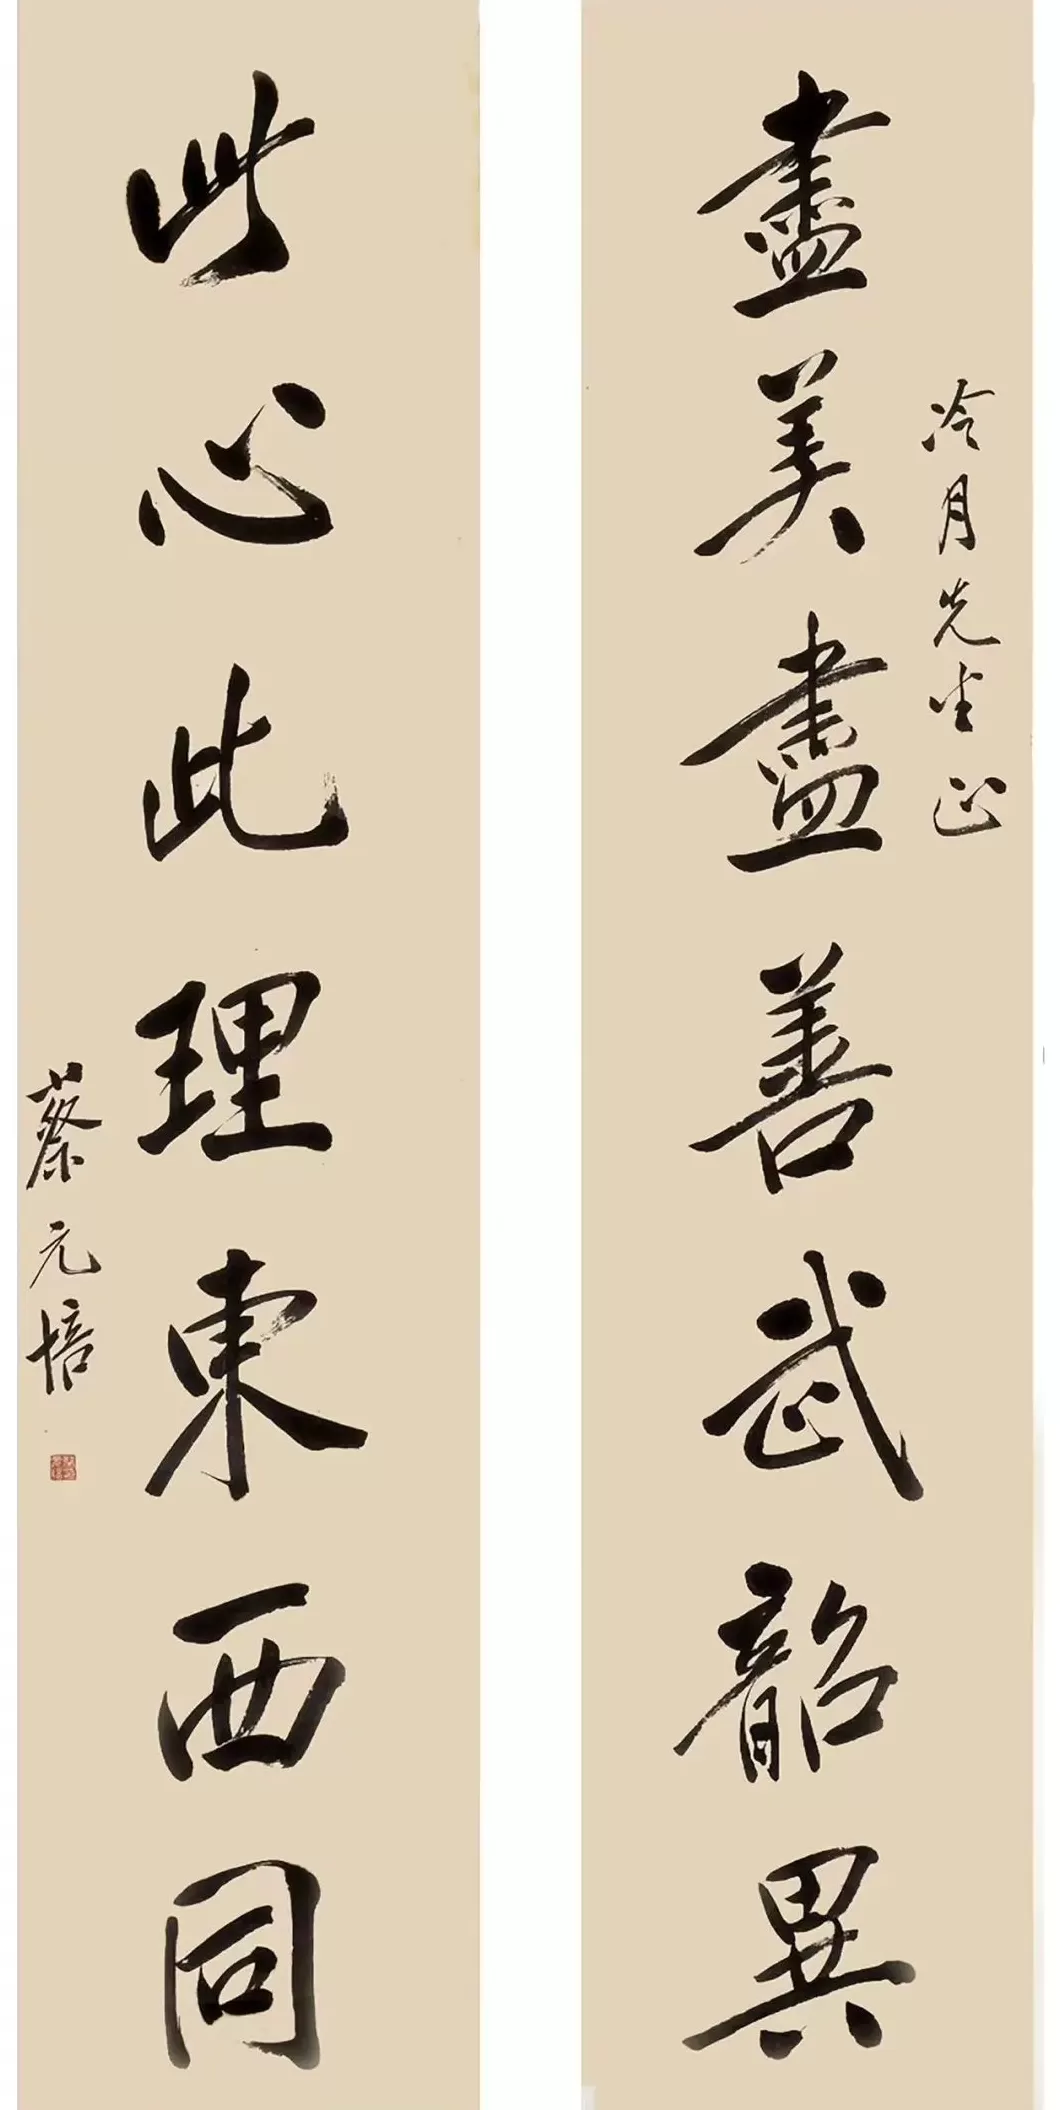 盡美盡善武韶異
冷月先生正
此心此理東西同
蔡元培